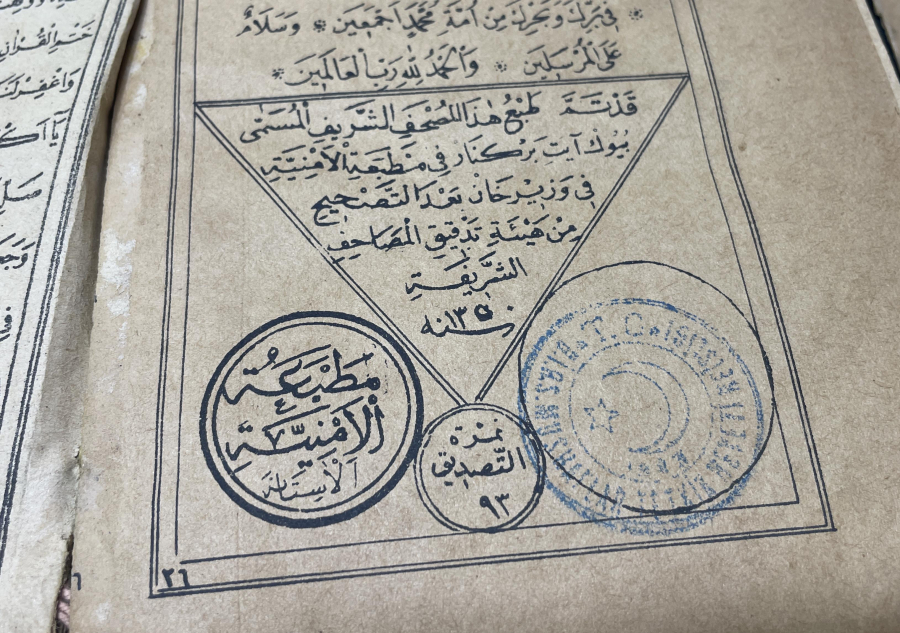 فِي بَرِّكَ وَبَحْرِكَ مِنْ اُمَّةِ مُحَمَّدٍ اَجْمَعِينَ * وَسَلَامٌ
عَلَى الْمُرْسَلِينَ * وَالْحَمْدُ لِلّٰهِ رَبِّ الْعَالَمِينَ *
قَدْ تَمَّ طَبْعُ هٰذَا الْمُصْحَفِ الشَّرِيفِ الْمُسَمّٰى
بيوك آيت بركنار فِي مَطْبَعَةِ الْاَمْنِيَّةِ
فِي وَزِيرْ خَانْ بَعْدَ التَّصْحِيحِ
مِنْ هَيْئَةِ تَدْقِيقِ الْمَصَاحِفِ
الشَّرِيفَةِ
سنه ١٣٥٠
مَطْبَعَةُ
الْاَمْنِيَّةِ
الْاَسِتَانَة
نمرة
التَّصديق
٩٣
T. C.
٢٦
خَتْمِ الْقُرْاٰنِ
وَاغْفِرْ لَنَا